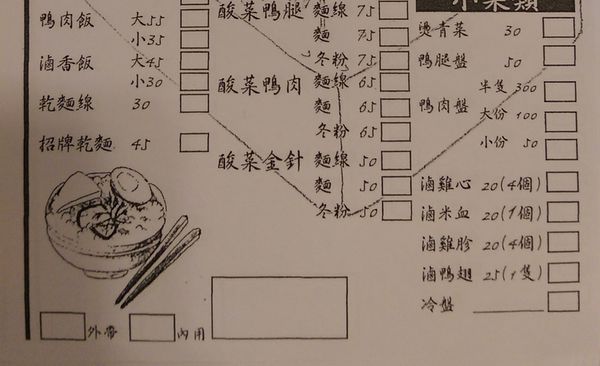 鴨肉飯 大55
小35
滷香飯 大45
小30
乾麵線 30
招牌乾麵 45
酸菜鴨腿 麵線 75
麵 75
冬粉 75
酸菜鴨肉 麵線 65
麵 65
冬粉 65
酸菜金針 麵線 50
麵 50
冬粉 50
小菜類
燙青菜 30
鴨腿盤 50
鴨肉盤 半隻 300
大份 100
小份 50
滷雞心 20(4個)
滷米血 20(1個)
滷雞胗 20(4個)
滷鴨翅 25(1隻)
冷盤
外帶 內用